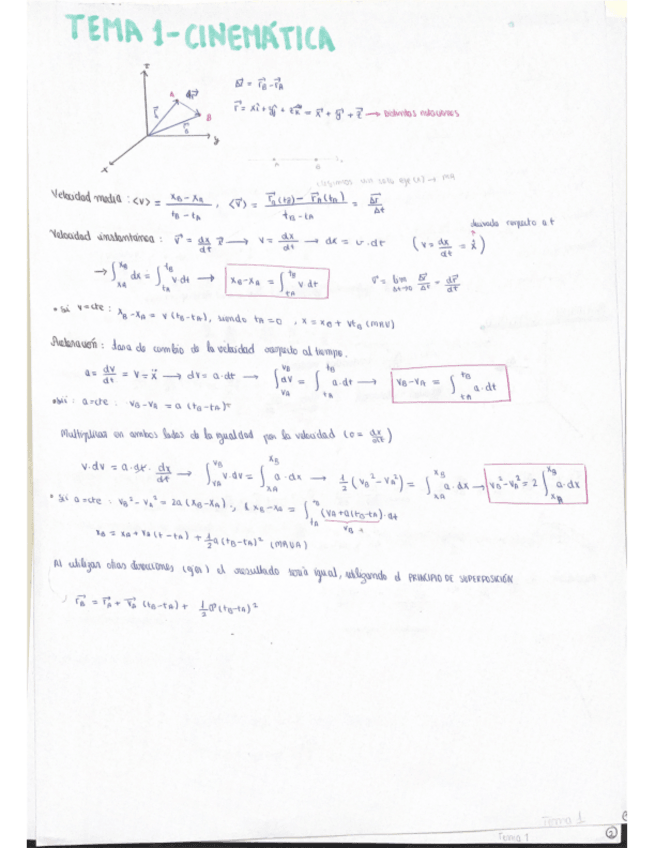 TEMA 1 - CINEMÁTICA
z
A
Δr⃗
B
y
x
Δr⃗ = r⃗B - r⃗A
→ Distintas notaciones
A B
Velocidad media : <v> = (xB - xA)/(tB - tA) , <v⃗> = (r⃗B(tB) - r⃗A(tA))/(tB - tA) = Δr⃗/Δt
derivada respecto a t
Velocidad instantánea : → v = dx/dt → dx = v·dt ( v = dx/dt = ẋ )
→ ∫xA^xB dx = ∫tA^tB v·dt → xB - xA = ∫tA^tB v·dt
v⃗ = lim Δt→0 Δr⃗/Δt = dr⃗/dt
• Si v=cte : xB - xA = v (tB - tA), siendo tA = 0 , (MRU)
Aceleración : tasa de cambio de la velocidad respecto al tiempo.
a = dv/dt = v̇ = ẍ → dv = a·dt → ∫vA^vB dv = ∫tA^tB a·dt → vB - vA = ∫tA^tB a·dt
• Si : a=cte : vB - vA = a (tB - tA)
Multiplicar en ambos lados de la igualdad por la velocidad (v = dx/dt)
v·dv = a·dt·dx/dt → ∫vA^vB v·dv = ∫xA^xB a·dx → 1/2 (vB² - vA²) = ∫xA^xB a·dx → vB² - vA² = 2 ∫xA^xB a·dx
• Si a=cte : vB² - vA² = 2a (xB - xA) ; xB - xA = ∫tA^tB (vA + a(tB - tA))·dt
vB
xB = xA + vA (t - tA) + 1/2 a (tB - tA)² (MRUA)
Al utilizar otras direcciones (ejes) el resultado será igual, utilizando el PRINCIPIO DE SUPERPOSICIÓN
r⃗B = r⃗A + v⃗A (tB - tA) + 1/2 a⃗ (tB - tA)²
Tema 1
Tema 1
2